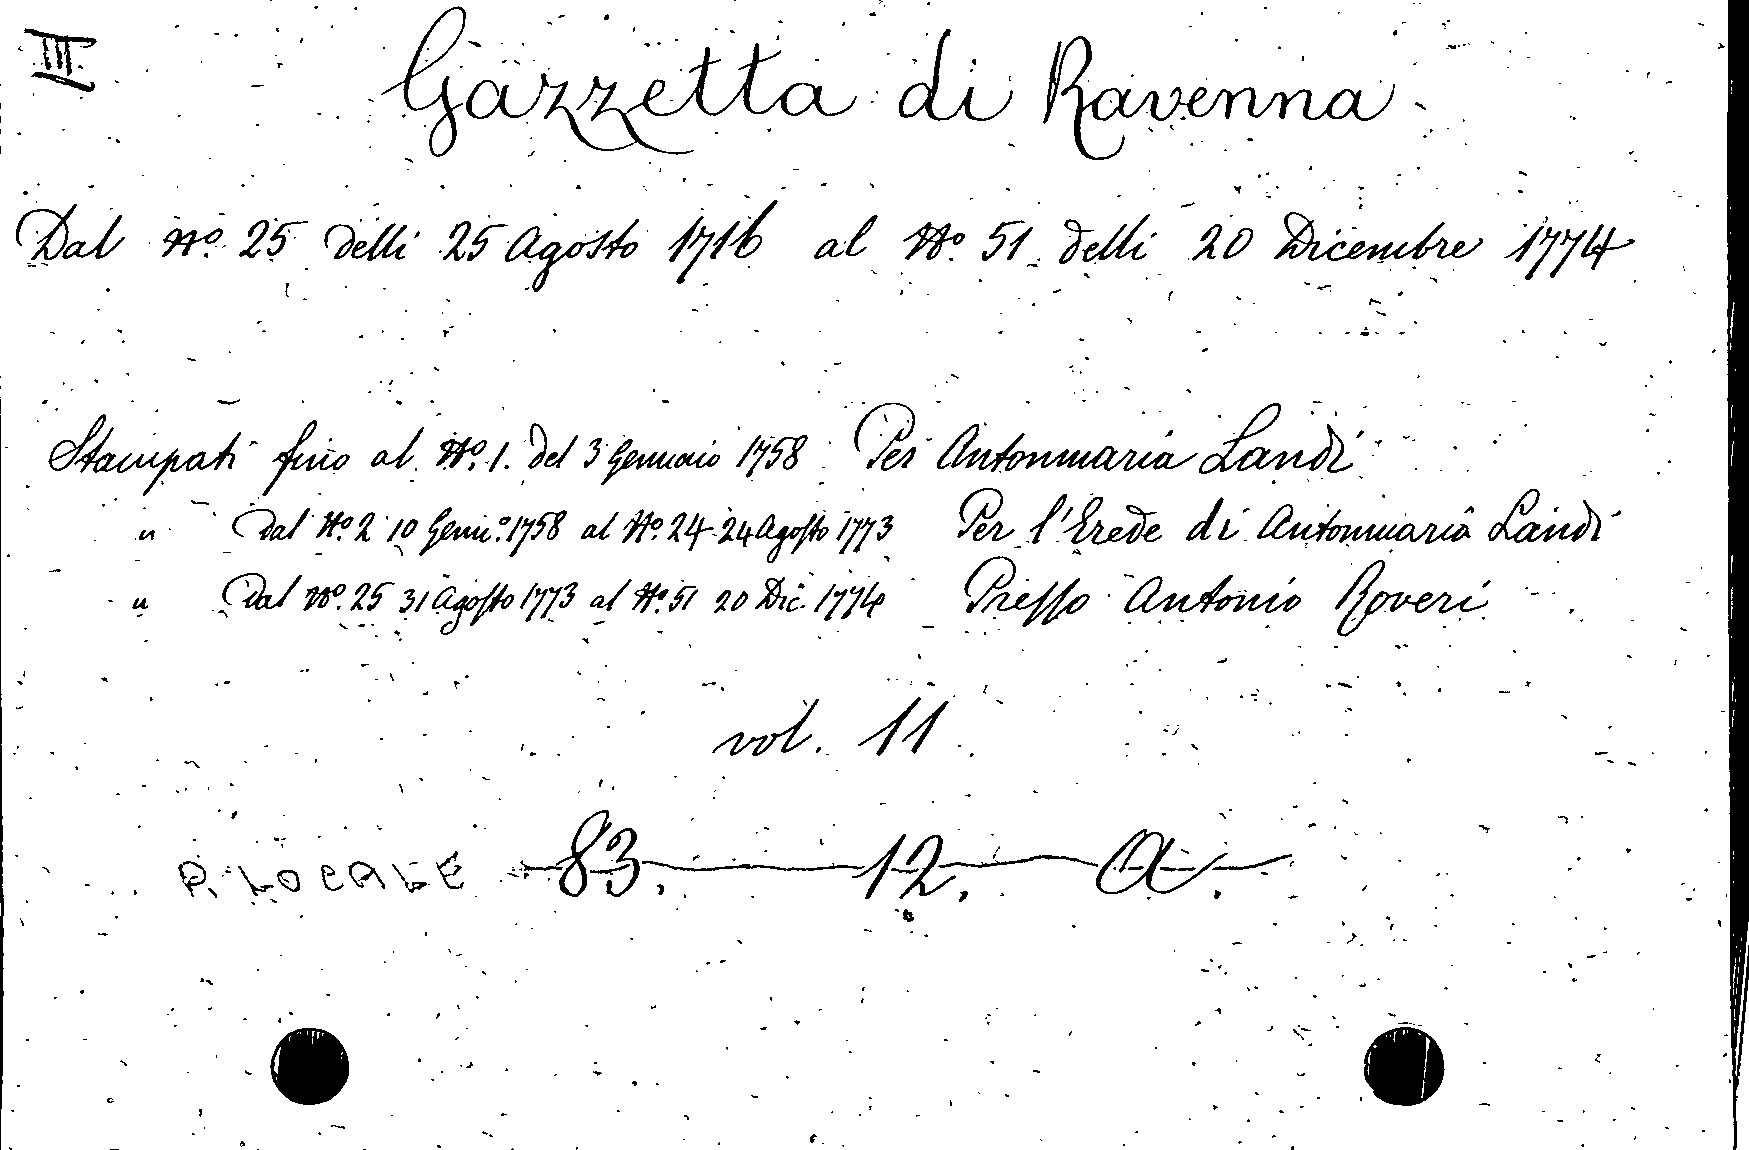 III
Gazzetta di Ravenna
Dal No. 25 delli 25 Agosto 1716 al No. 51 delli 20 Dicembre 1774
Stampati fino al No. 1. del 3 Gennaio 1758 Per Antonmaria Landi
" Dal No. 2 10 Genn.o 1758 al No. 24 24 Agosto 1773 Per l'Erede di Antonmaria Landi
" Dal No. 25 31 Agosto 1773 al No. 51 20 Dic. 1774 Presso Antonio Roveri
vol. 11
R. LOCALE 83. 12. A.